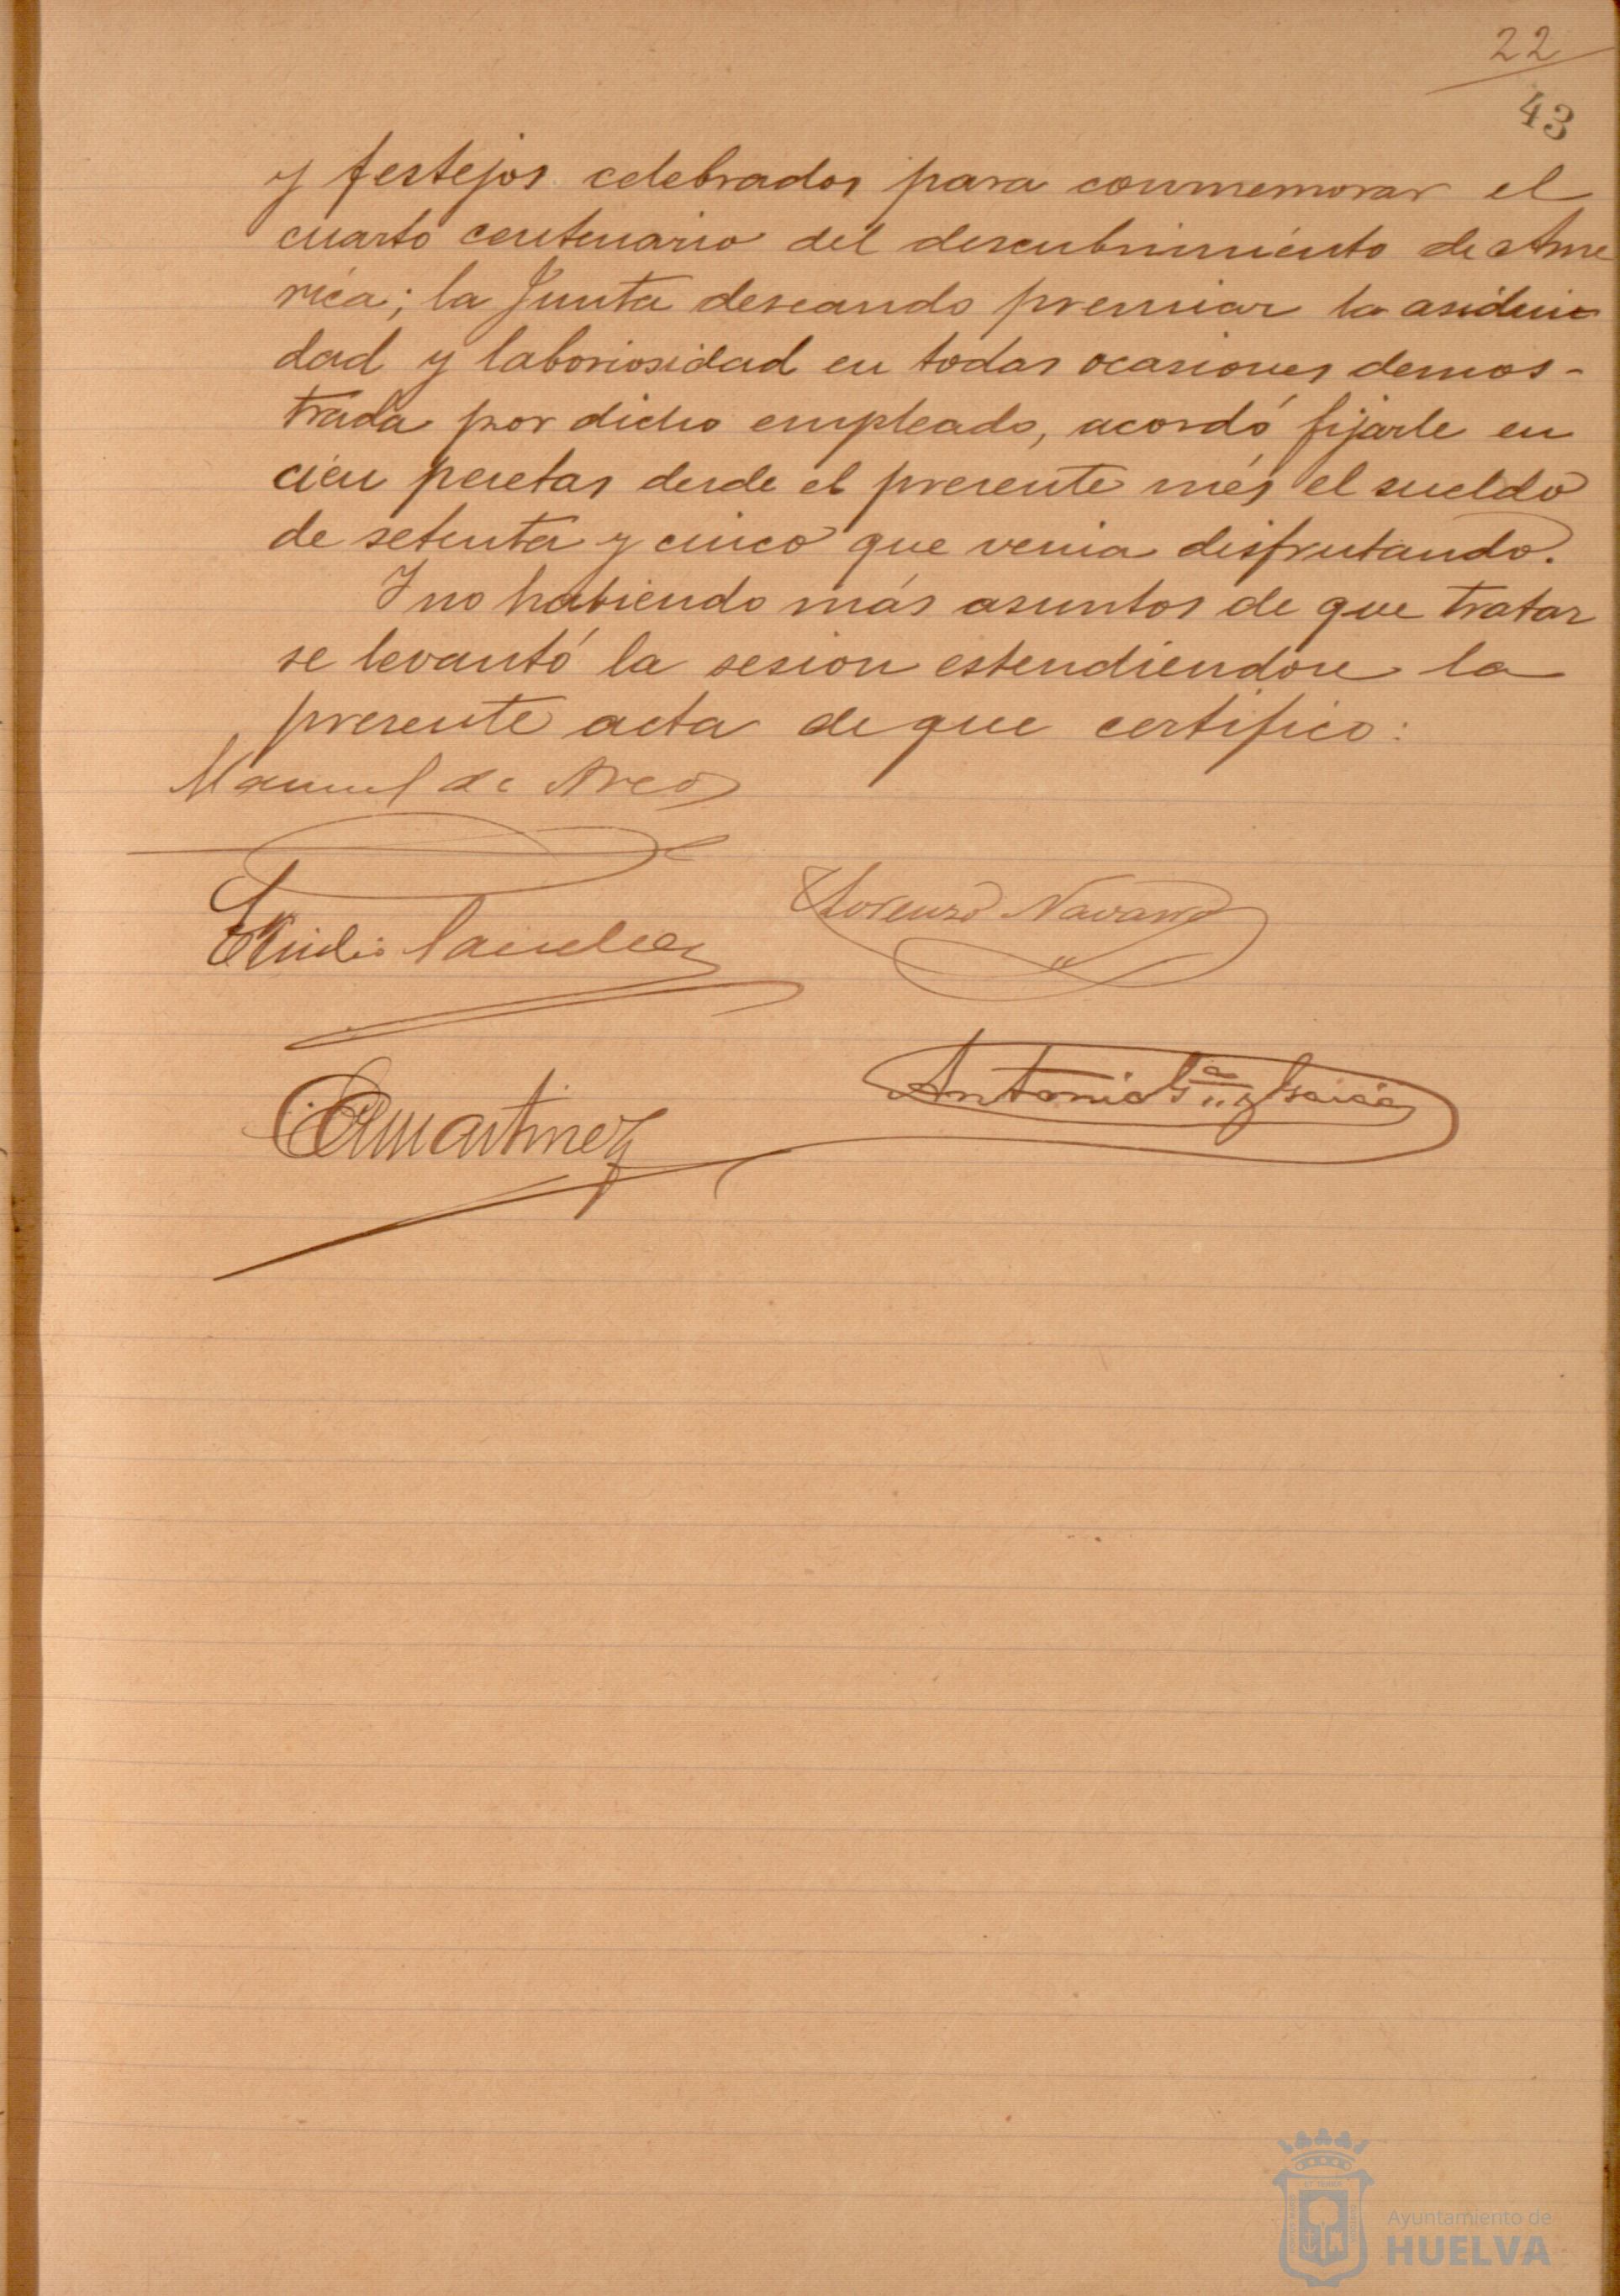 22
43
y festejos celebrados para conmemorar el
cuarto centenario del descubrimiento de Amé
rica; la Junta deseando premiar la asidui
dad y laboriosidad en todas ocasiones demos-
trada por dicho empleado, acordó fijarle en
cien pesetas desde el presente més el sueldo
de setenta y cinco que venia disfrutando.
Y no habiendo más asuntos de que tratar
se levantó la sesion estendiendose la
presente acta de que certifico:
Manuel de
Emilio
Lorenzo Navarro
Antonio Gª y García
Martinez
Ayuntamiento de
HUELVA